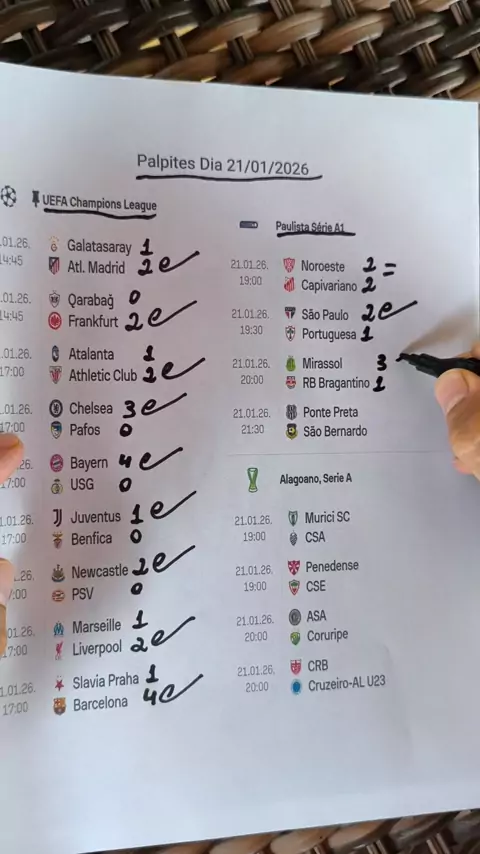 Palpites Dia 21/01/2026
UEFA Champions League
.01.26. Galatasaray 1
14:45 Atl. Madrid 2
.01.26. Qarabağ 0
14:45 Frankfurt 2
.01.26. Atalanta 1
17:00 Athletic Club 2
.01.26. Chelsea 3
17:00 Pafos 0
.26. Bayern 4
17:00 USG 0
1.01.26. Juventus 1
17:00 Benfica 0
.26. Newcastle 2
17:00 PSV 0
01.26. Marseille 1
17:00 Liverpool 2
1.01.26. Slavia Praha 1
17:00 Barcelona 4
Paulista Série A1
21.01.26. Noroeste 2 =
19:00 Capivariano 2
21.01.26. São Paulo 2
19:30 Portuguesa 1
21.01.26. Mirassol 3
20:00 RB Bragantino 1
21.01.26. Ponte Preta
21:30 São Bernardo
Alagoano, Serie A
21.01.26. Murici SC
19:00 CSA
21.01.26. Penedense
19:00 CSE
21.01.26. ASA
20:00 Coruripe
21.01.26. CRB
20:00 Cruzeiro-AL U23